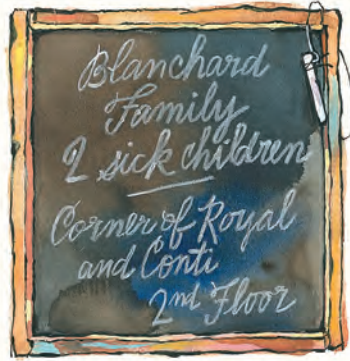 Blanchard
Family
2 sick children
Corner of Royal
and Conti
2nd Floor